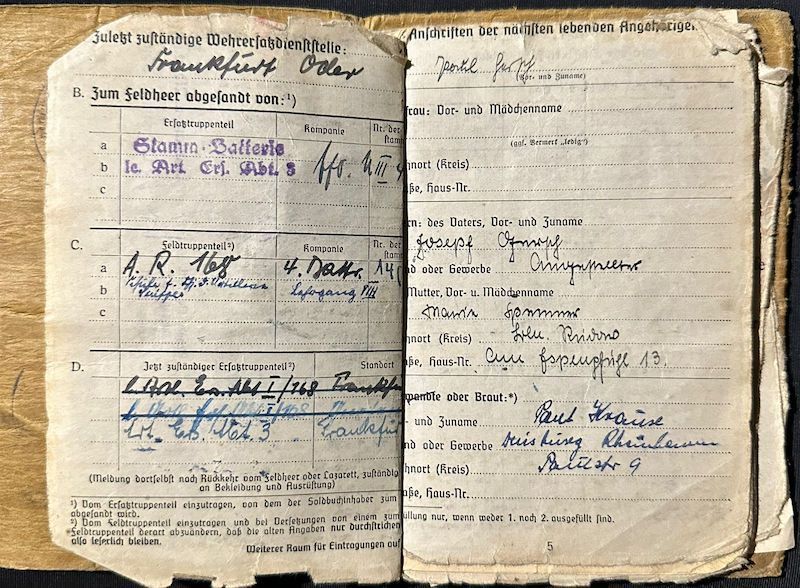 Zuletzt zuständige Wehrersatzdienststelle:
Frankfurt Oder
B. Zum Feldheer abgesandt von:¹)
Ersatztruppenteil Kompanie Nr. der
a Stamm-Batterie
b le. Art. Ers. Abt. 3
c
C. Feldtruppenteil²) Kompanie Nr. der
a A. R. 168 4. Battr.
b
c
D. Jetzt zuständiger Ersatztruppenteil²) Standort
Ers. Abt. I/168
Art. Ers. Abt. 3 Frankfurt
(Meldung dortselbst nach Rückkehr vom Feldheer oder Lazarett, zuständig
an Bekleidung und Ausrüstung)
¹) Vom Ersatztruppenteil einzutragen, von dem der Soldbuchinhaber zum
abgesandt wird.
²) Vom Feldtruppenteil einzutragen und bei Versetzungen von einem zum
Feldtruppenteil derart abzuändern, daß die alten Angaben nur durchstrichen,
also leserlich bleiben.
Weiterer Raum für Eintragungen auf
Anschriften der nächsten lebenden Angehörigen
(Vor- und Zuname)
frau: Vor- und Mädchenname
(ggf. Vermerk „ledig")
hnort (Kreis)
ße, Haus-Nr.
rn: des Vaters, Vor- und Zuname
Josepf
nd oder Gewerbe Angestellter
Mutter, Vor- u. Mädchenname
Maria
hnort (Kreis) Bln. Rudow
ße, Haus-Nr. Am Espenpfuhl 13.
wandte oder Braut:*)
- und Zuname Paul Krause
nd oder Gewerbe Duisburg
hnort (Kreis) Paulstr 9
ße, Haus-Nr.
üllung nur, wenn weder 1. noch 2. ausgefüllt sind.
5